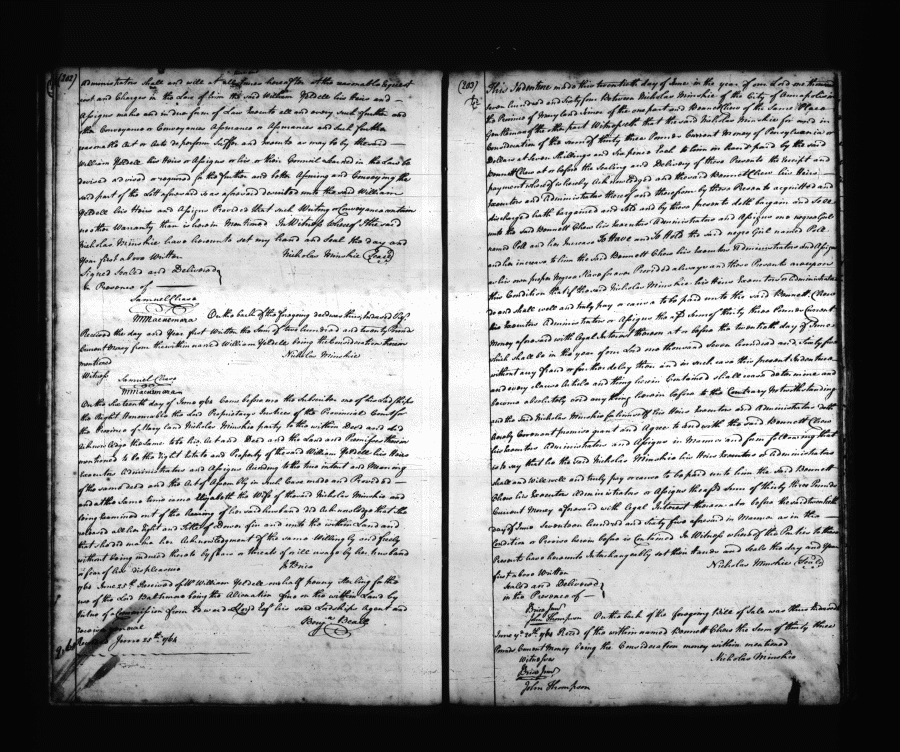 (202)
Administrators shall and will at all times hereafter at the reasonable Request
cost and Charges in the Law of him the said William Yeldell his Heirs and
Assigns make and in due form of Law Execute all and every such further and
other Conveyance or Conveyances Assurance or Assurances and such further
reasonable Act or Acts do perform Suffer and Execute as may be by the said
William Yeldell his Heirs or Assigns or his or their Council learned in the Law be
devised advised or required for the further and better Assuring and Conveying the
said part of the Lott aforesaid is as aforesaid devised unto the said William
Yeldell his Heirs and Assigns Provided that such Writing or Conveyance contain
no other Warranty than is herein Mentioned In Witness whereof I the said
Nicholas Minskie have hereunto set my hand and Seal the day and
Year first above Written
Nicholas Minskie (Seal)
Signed Sealed and Delivered
in Presence of
Samuel Chase
M Macnemara
On the back of the foregoing deed was thus endorsed
Received the day and Year first Written the Sum of two hundred and twenty Pounds
Current Money from the within named William Yeldell being the Consideration therein
mentioned
Nicholas Minskie
Witness
Samuel Chase
M Macnemara
On the Sixteenth day of June 1764 Came before me the Subscriber one of his Lordships
the Right Honourable the Lord Proprietary Justices of the Provincial Court for
the Province of Maryland Nicholas Minskie party to the within Deed and did
Acknowledge the same to be his Act and Deed and the Land and Premises therein
mentioned to be the right Estate and Property of the said William Yeldell his Heirs
Executors Administrators and Assigns According to the true intent and Meaning
of the same deed and the Act of Assembly in such Case made and Provided
and at the Same time came Elizabeth the Wife of the said Nicholas Minskie and
being Examined out of the hearing of her said husband did Acknowledge that she
released all her Right and Title of Dower in and unto the within Land and
that she did make her Acknowledgment of the same Willingly and freely
without being induced thereto by fears or threats of ill usage by her husband
or fear of his displeasure
Js Brice
1764 June 25th Received of Mr William Yeldell one half penny Sterling for the
use of the Lord Baltimore being the Alienation fine on the within Land by
Virtue of a Commission from Edward Lloyd Esqr his said Lordships Agent and
Receiver general
Benja Beall
June 25th 1764
(203)
This Indenture made this twentieth day of June in the year of our Lord one thousand
seven hundred and sixty four Between Nicholas Minskie of the City of Annapolis in
the Province of Maryland of the one part and Bennett Chew of the Same Place
Gentleman of the other part Witnesseth that the said Nicholas Minskie for and in
Consideration of the sum of thirty three Pounds Current Money of Pennsylvania or
Dollars at Seven Shillings and Six pence Each to him in hand paid by the said
Bennett Chew at or before the Sealing and Delivery of these Presents the receipt and
payment whereof is hereby Acknowledged and the said Bennett Chew his Heirs
Executors and Administrators thereof and therefrom by these Presents acquitted and
discharged hath bargained and Sold and by these presents doth bargain and Sell
unto the said Bennett Chew his Executors Administrators and Assigns one negro Girl
named Poll and her Increase To Have and To Hold the said negro Girl named Poll
and her increase to him the said Bennett Chew his Executors Administrators and Assigns
as his own proper Negroe Slave for ever Provided always and these Presents are upon
this Condition that if the said Nicholas Minskie his Heirs Executors or Administrators
do and shall well and truly pay or cause to be paid unto the said Bennett Chew
his Executors Administrators or Assigns the afsd Sum of thirty three Pounds Current
Money aforesaid with Legal Interest thereon at or before the twentieth day of June
which shall be in the year of our Lord one thousand Seven hundred and Sixty five
without any fraud or further delay then and in such case this present Indenture
and every clause Article and thing herein Contained shall cease determine and
become absolutely void any thing herein before to the Contrary Notwithstanding
and the said Nicholas Minskie for himself his Heirs Executors and Administrators doth
hereby Covenant promise grant and Agree to and with the said Bennett Chew
his Executors Administrators and Assigns in Manner and form following that
is to say that he the said Nicholas Minskie his Heirs Executors or Administrators
shall and will well and truly pay or cause to be paid unto him the said Bennett
Chew his Executors Administrators or Assigns the afsd Sum of thirty three Pounds
Current Money aforesaid with Legal Interest thereon at or before the said twentieth
day of June Seventeen hundred and Sixty five aforesaid in Manner as in the
Condition or Proviso herein before is Contained In Witness whereof the Parties to these
Presents have hereunto Interchangeably set their hands and Seals the day and Year
first above Written
Nicholas Minskie (Seal)
Sealed and Delivered
in the Presence of
Brice Junr
John Thompson
On the back of the foregoing Bill of Sale was thus Endorsed
June ye 20th 1764 Received of the within named Bennett Chew the Sum of thirty three
Pounds Current Money being the Consideration money within mentioned
Nicholas Minskie
Witnesses
Brice Junr
John Thompson